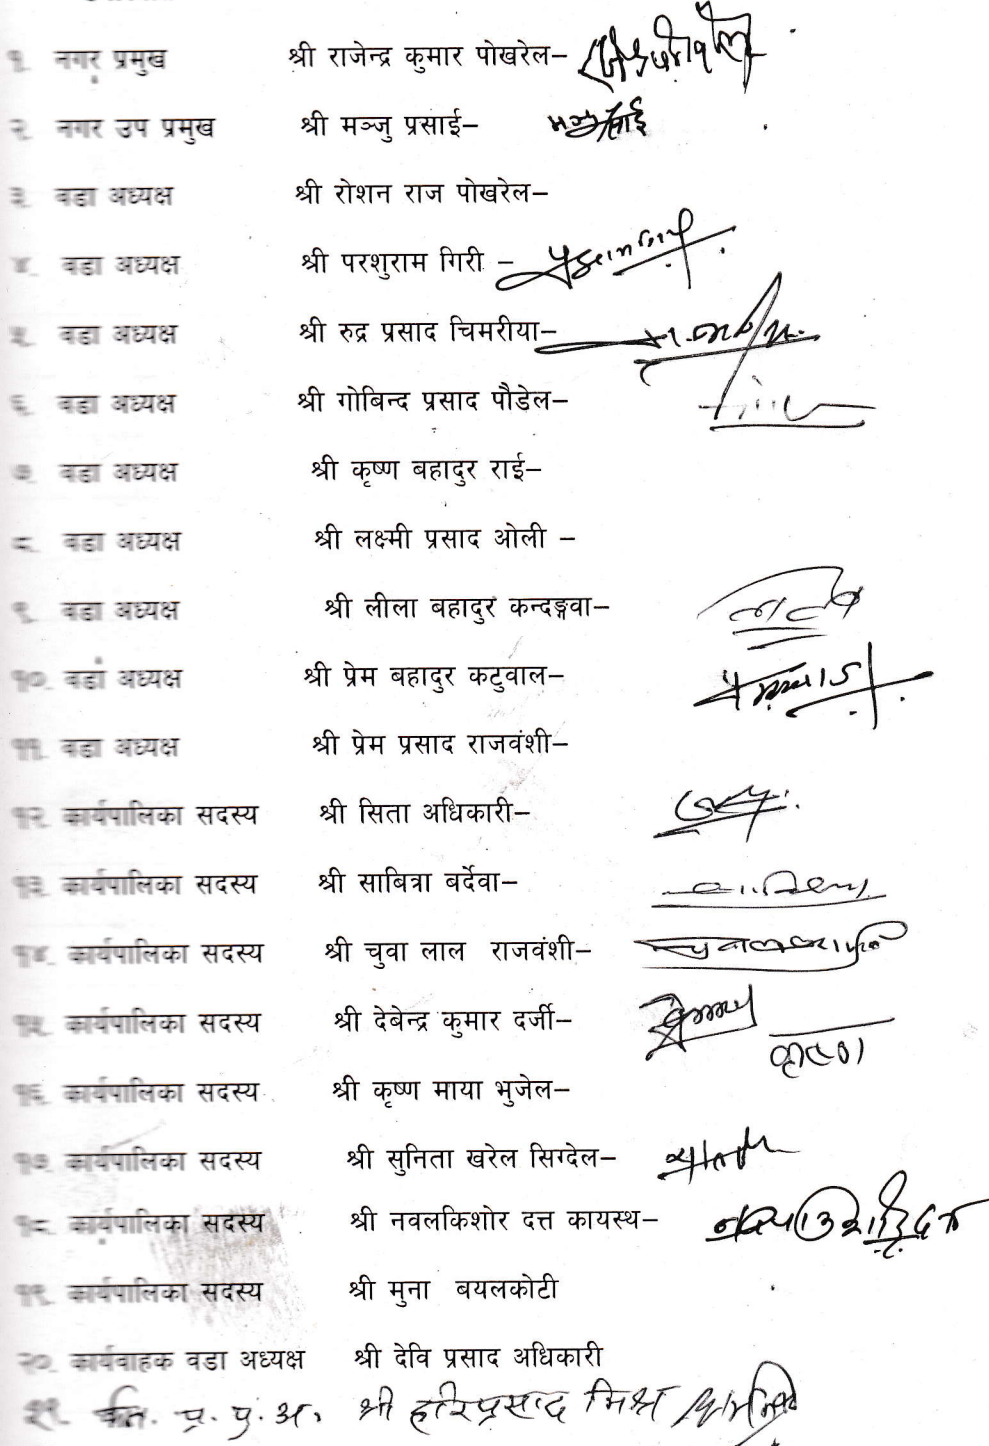 १. नगर प्रमुख श्री राजेन्द्र कुमार पोखरेल–
२. नगर उप प्रमुख श्री मञ्जु प्रसाई–
३. वडा अध्यक्ष श्री रोशन राज पोखरेल–
४. वडा अध्यक्ष श्री परशुराम गिरी –
५. वडा अध्यक्ष श्री रुद्र प्रसाद चिमरीया–
६. वडा अध्यक्ष श्री गोबिन्द प्रसाद पौडेल–
७. वडा अध्यक्ष श्री कृष्ण बहादुर राई–
८. वडा अध्यक्ष श्री लक्ष्मी प्रसाद ओली –
९. वडा अध्यक्ष श्री लीला बहादुर कन्दङ्गवा–
१०. वडा अध्यक्ष श्री प्रेम बहादुर कटुवाल–
११. वडा अध्यक्ष श्री प्रेम प्रसाद राजवंशी–
१२. कार्यपालिका सदस्य श्री सिता अधिकारी–
१३. कार्यपालिका सदस्य श्री साबित्रा बर्देवा–
१४. कार्यपालिका सदस्य श्री चुवा लाल राजवंशी–
१५. कार्यपालिका सदस्य श्री देबेन्द्र कुमार दर्जी–
कृष्ण
१६. कार्यपालिका सदस्य श्री कृष्ण माया भुजेल–
१७. कार्यपालिका सदस्य श्री सुनिता खरेल सिग्देल–
१८. कार्यपालिका सदस्य श्री नवलकिशोर दत्त कायस्थ–
१९. कार्यपालिका सदस्य श्री मुना बयलकोटी
२०. कार्यवाहक वडा अध्यक्ष श्री देवि प्रसाद अधिकारी
२१. प्र. प्र. अ. श्री हरिप्रसाद मिश्र